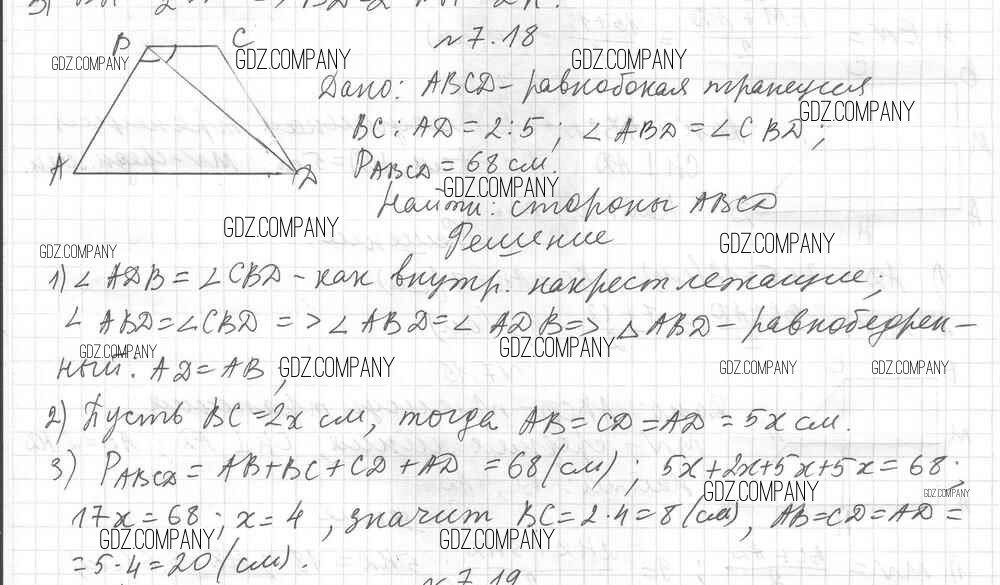 B C
GDZ.COMPANY
GDZ.COMPANY
GDZ.COMPANY
A D
№ 7.18
Дано: ABCD – равнобокая трапеция
GDZ.COMPANY
BC : AD = 2:5 ; ∠ABD = ∠CBD ;
P ABCD = 68 см.
GDZ.COMPANY
Найти: стороны ABCD
GDZ.COMPANY
Решение
GDZ.COMPANY
GDZ.COMPANY
1) ∠ADB = ∠CBD – как внутр. накрест лежащие;
∠ABD = ∠CBD => ∠ABD = ∠ADB => △ABD – равнобедрен–
GDZ.COMPANY
GDZ.COMPANY
ный. AD = AB ;
GDZ.COMPANY
GDZ.COMPANY
GDZ.COMPANY
2) Пусть BC = 2x см, тогда AB = CD = AD = 5x см.
3) P ABCD = AB + BC + CD + AD = 68 (см) ; 5x + 2x + 5x + 5x = 68.
GDZ.COMPANY
GDZ.COMPANY
17x = 68 ; x = 4 , значит BC = 2·4 = 8 (см), AB = CD = AD =
GDZ.COMPANY
GDZ.COMPANY
= 5·4 = 20 (см).
№ 7.19